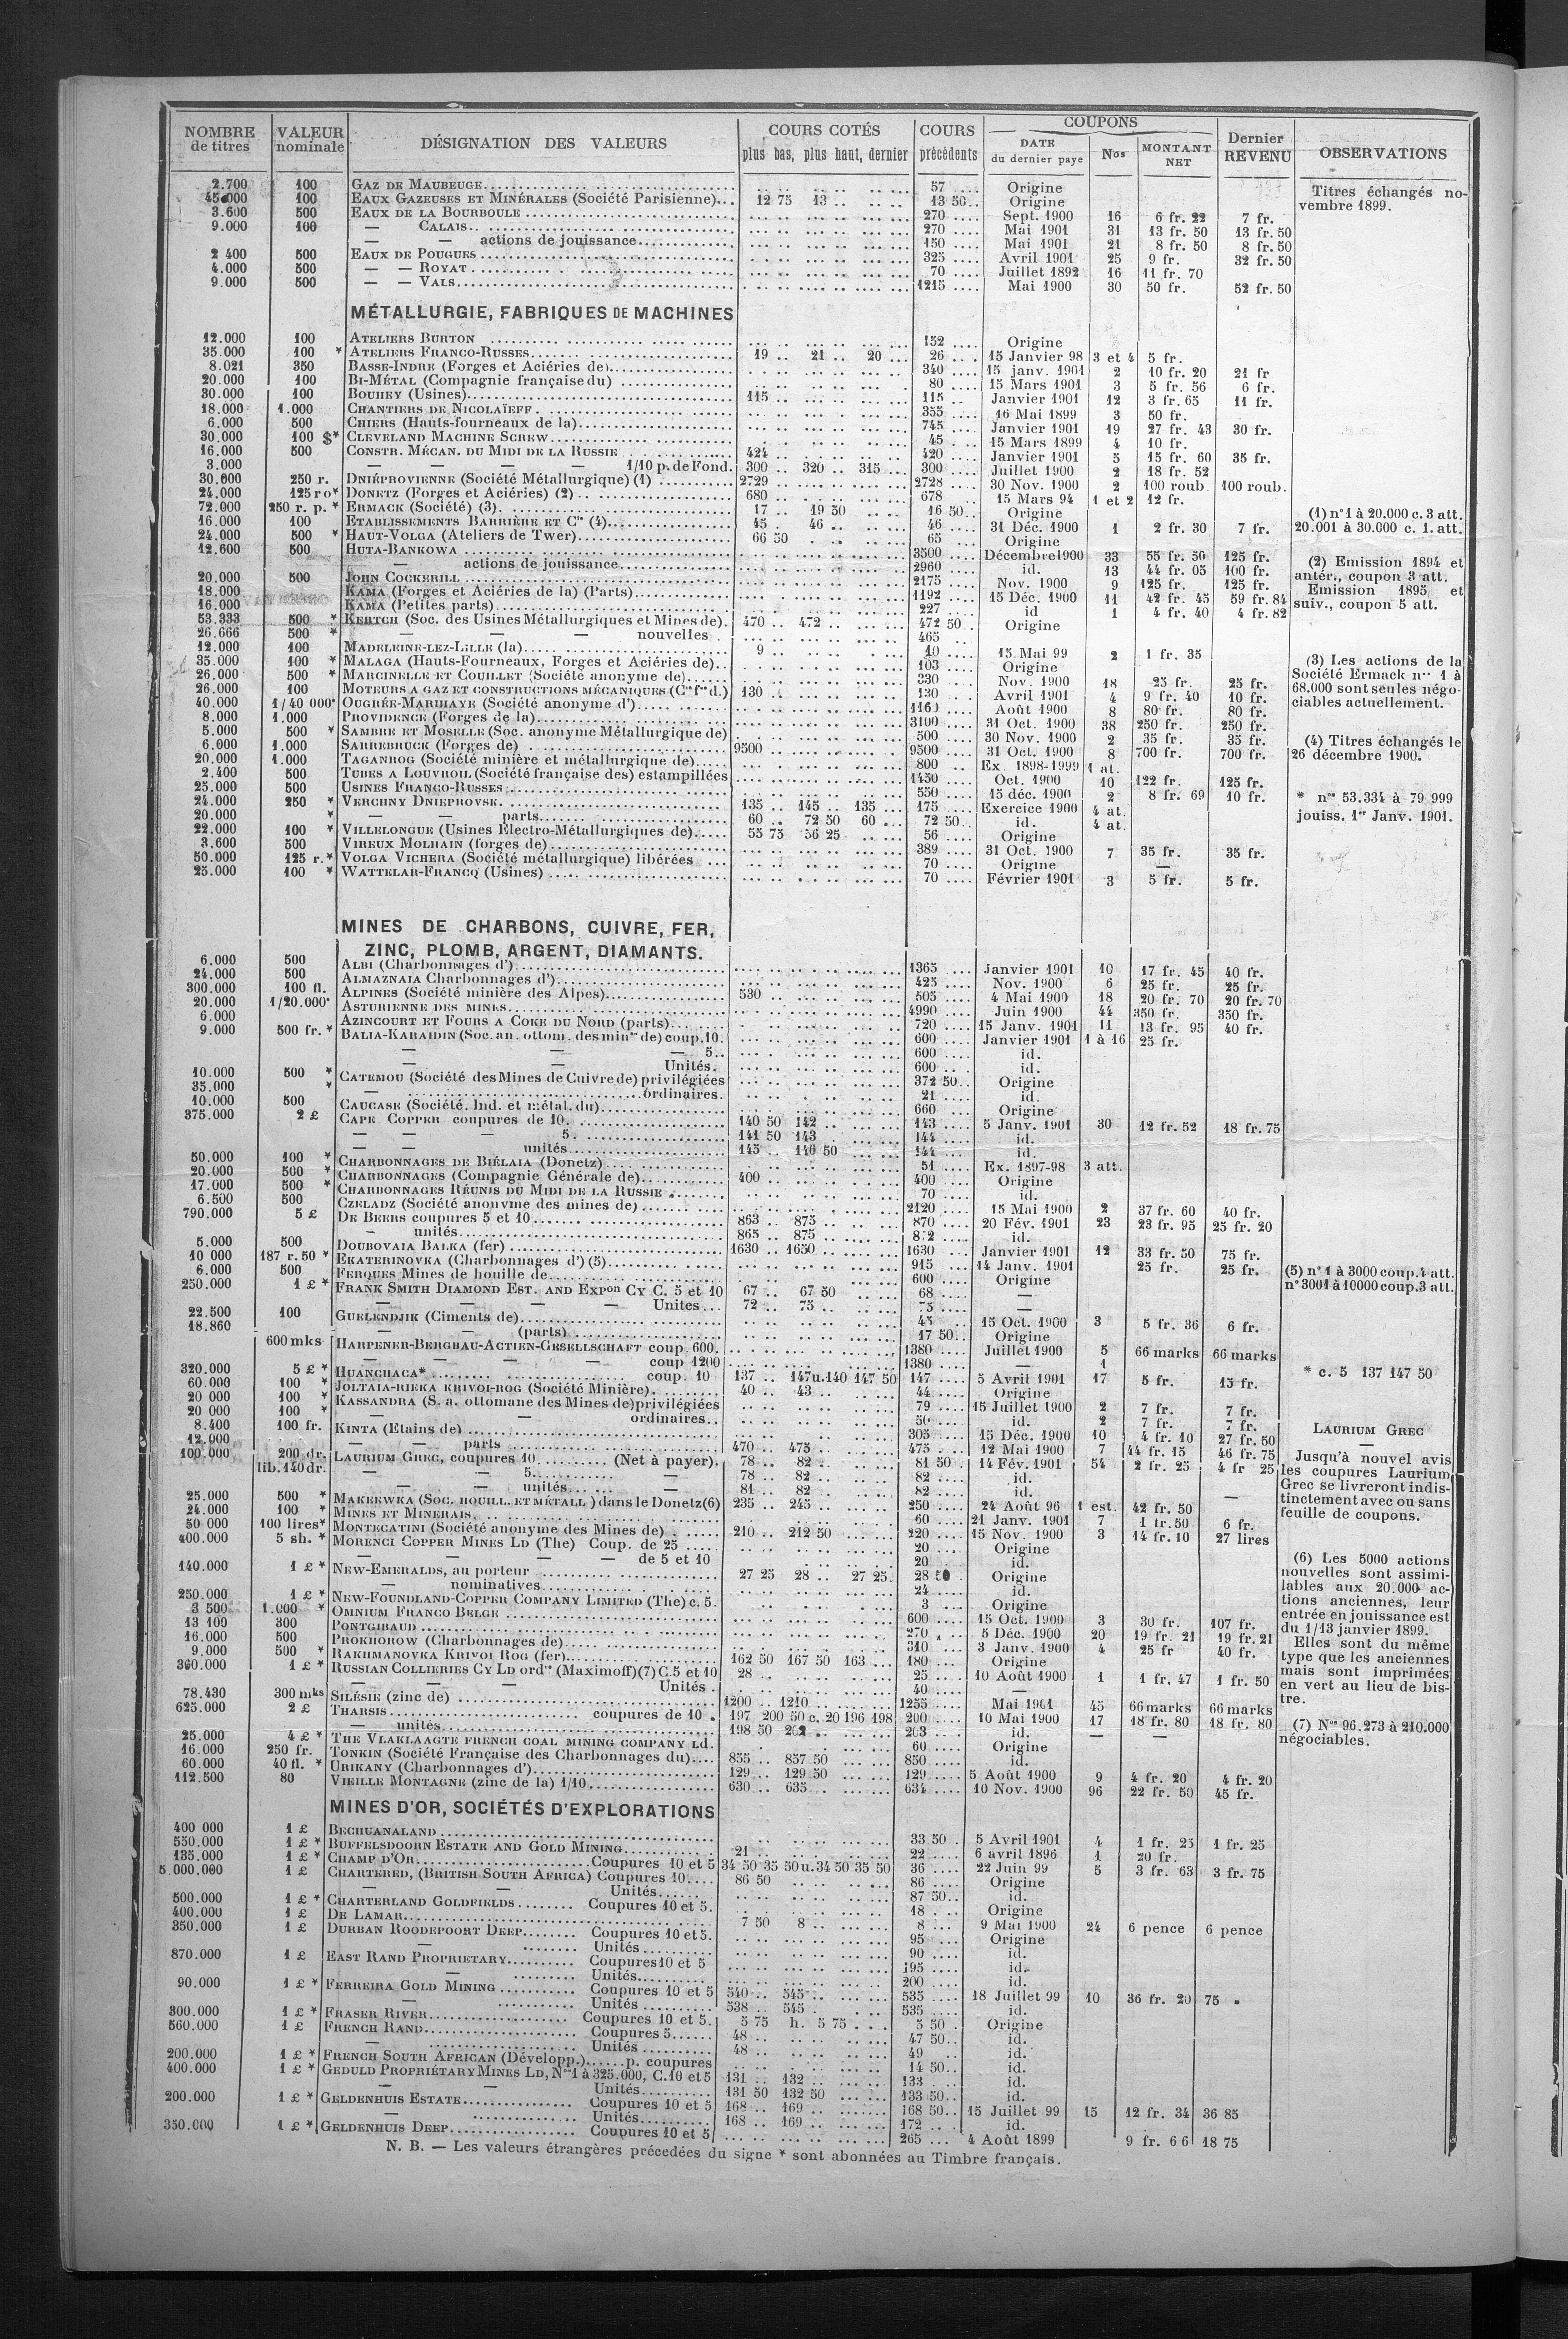 NOMBRE de titres | VALEUR nominale | DÉSIGNATION DES VALEURS | COURS COTÉS plus bas, plus haut, dernier | COURS précédents | COUPONS DATE du dernier paye | Nos | MONTANT NET | Dernier REVENU | OBSERVATIONS
2.700 100 GAZ DE MAUBEUGE 57 Origine Titres échangés no-
45.000 100 EAUX GAZEUSES ET MINÉRALES (Société Parisienne) 12 75 13 13 50 Origine vembre 1899.
3.600 500 EAUX DE LA BOURBOULE 270 Sept. 1900 16 6 fr. 22 7 fr.
9.000 100 — CALAIS 270 Mai 1901 31 13 fr. 50 13 fr. 50
— — actions de jouissance 150 Mai 1901 21 8 fr. 50 8 fr. 50
2 400 500 EAUX DE POUGUES 325 Avril 1901 25 9 fr. 32 fr. 50
4.000 500 — — ROYAT 70 Juillet 1892 16 11 fr. 70
9.000 500 — — VALS 1215 Mai 1900 30 50 fr. 52 fr. 50
MÉTALLURGIE, FABRIQUES DE MACHINES
12.000 100 ATELIERS BURTON 152 Origine
35.000 100 * ATELIERS FRANCO-RUSSES 19 21 20 26 15 Janvier 98 3 et 4 5 fr.
8.021 350 BASSE-INDRE (Forges et Aciéries de) 340 15 janv. 1901 2 10 fr. 20 21 fr
20.000 100 BI-MÉTAL (Compagnie française du) 80 15 Mars 1901 3 5 fr. 56 6 fr.
30.000 100 BOUHEY (Usines) 115 115 Janvier 1901 12 3 fr. 65 11 fr.
18.000 1.000 CHANTIERS DE NICOLAÏEFF 355 16 Mai 1899 3 50 fr.
6.000 500 CHIERS (Hauts-fourneaux de la) 745 Janvier 1901 19 27 fr. 43 30 fr.
30.000 100 $* CLEVELAND MACHINE SCREW 45 15 Mars 1899 4 10 fr.
16.000 500 CONSTR. MÉCAN. DU MIDI DE LA RUSSIE 424 420 Janvier 1901 5 15 fr. 60 35 fr.
3.000 — — — — 1/10 p. de Fond. 300 320 315 300 Juillet 1900 2 18 fr. 52
30.000 250 r. DNIÉPROVIENNE (Société Métallurgique) (1) 2729 2728 30 Nov. 1900 2 100 roub. 100 roub.
24.000 125 ro* DONETZ (Forges et Aciéries) (2) 680 678 15 Mars 94 1 et 2 12 fr.
72.000 250 r. p. * ERMACK (Société) (3) 17 19 50 16 50 Origine (1) n° 1 à 20.000 c. 3 att.
16.000 100 ETABLISSEMENTS BARRIÈRE ET Cie (4) 45 46 46 31 Déc. 1900 1 2 fr. 30 7 fr. 20.001 à 30.000 c. 1. att.
24.000 500 * HAUT-VOLGA (Ateliers de Twer) 66 50 65 Origine
12.600 500 HUTA-BANKOWA 3500 Décembre 1900 33 55 fr. 50 125 fr. (2) Emission 1894 et
— actions de jouissance 2960 id. 13 44 fr. 05 100 fr. antér., coupon 3 att.
20.000 500 JOHN COCKERILL 2175 Nov. 1900 9 125 fr. 125 fr. Emission 1895 et
18.000 KAMA (Forges et Aciéries de la) (Parts) 1192 15 Déc. 1900 11 42 fr. 45 59 fr. 84 suiv., coupon 5 att.
16.000 KAMA (Petites parts) 227 id 1 4 fr. 40 4 fr. 82
53.333 500 * KERTCH (Soc. des Usines Métallurgiques et Mines de) 470 472 472 50 Origine
26.666 500 * — — — nouvelles 465
12.000 100 MADELEINE-LEZ-LILLE (la) 9 10 15 Mai 99 2 1 fr. 35
35.000 100 * MALAGA (Hauts-Fourneaux, Forges et Aciéries de) 103 Origine (3) Les actions de la
26.000 500 * MARCINELLE ET COUILLET (Société anonyme de) 330 Nov. 1900 18 25 fr. 25 fr. Société Ermack nos 1 à
26.000 100 MOTEURS A GAZ ET CONSTRUCTIONS MÉCANIQUES (Cie fse d.) 130 130 Avril 1901 4 9 fr. 40 10 fr. 68.000 sont seules négo-
40.000 1/40 000e OUGRÉE-MARIHAYE (Société anonyme d') 1160 Août 1900 8 80 fr. 80 fr. ciables actuellement.
8.000 1.000 PROVIDENCE (Forges de la) 3100 31 Oct. 1900 38 250 fr. 250 fr.
5.000 500 * SAMBRE ET MOSELLE (Soc. anonyme Métallurgique de) 500 30 Nov. 1900 2 35 fr. 35 fr. (4) Titres échangés le
6.000 1.000 SARREBRUCK (Forges de) 9500 9500 31 Oct. 1900 8 700 fr. 700 fr. 26 décembre 1900.
20.000 1.000 TAGANROG (Société minière et métallurgique de) 800 Ex. 1898-1999 1 at.
2.400 500 TUBES A LOUVROIL (Société française des) estampillées 1450 Oct. 1900 10 122 fr. 125 fr.
25.000 500 USINES FRANCO-RUSSES 550 15 déc. 1900 2 8 fr. 69 10 fr. * nos 53.334 à 79 999
24.000 250 * VERCHNY DNIEPROVSK 135 145 135 175 Exercice 1900 4 at. jouiss. 1er Janv. 1901.
20.000 * — — parts 60 72 50 60 72 50 id. 4 at.
22.000 100 * VILLELONGUE (Usines Electro-Métallurgiques de) 55 75 56 25 56 Origine
3.600 500 VIREUX MOLHAIN (forges de) 389 31 Oct. 1900 7 35 fr. 35 fr.
50.000 125 r.* VOLGA VICHERA (Société métallurgique) libérées 70 Origine —
25.000 100 * WATTELAR-FRANCQ (Usines) 70 Février 1901 3 5 fr. 5 fr.
MINES DE CHARBONS, CUIVRE, FER,
ZINC, PLOMB, ARGENT, DIAMANTS.
6.000 500 ALBI (Charbonnages d') 1365 Janvier 1901 10 17 fr. 45 40 fr.
24.000 500 ALMAZNAIA Charbonnages d') 425 Nov. 1900 6 25 fr. 25 fr.
300.000 100 fl. ALPINES (Société minière des Alpes) 530 505 4 Mai 1900 18 20 fr. 70 20 fr. 70
20.000 1/20.000e ASTURIENNE DES MINES 4990 Juin 1900 44 350 fr. 350 fr.
6.000 AZINCOURT ET FOURS A COKE DU NORD (parts) 720 15 Janv. 1901 11 13 fr. 95 40 fr.
9.000 500 fr. * BALIA-KARAIDIN (Soc. an. ottom. des mines de) coup. 10. 600 Janvier 1901 1 à 16 25 fr.
— — — 5 600 id.
— — Unités. 600 id.
10.000 500 * CATEMOU (Société des Mines de Cuivre de) privilégiées 372 50 Origine
35.000 * — ordinaires. 21 id.
10.000 500 CAUCASE (Société. Ind. et métal. du) 660 Origine
375.000 2 £ CAPE COPPER coupures de 10 140 50 142 143 5 Janv. 1901 30 12 fr. 52 18 fr. 75
— — — 5 141 50 143 144 id.
— — unités 145 146 50 144 id.
50.000 100 * CHARBONNAGES DE BIÉLAIA (Donetz) 51 Ex. 1897-98 3 att.
20.000 500 * CHARBONNAGES (Compagnie Générale de) 400 400 Origine
17.000 500 * CHARBONNAGES RÉUNIS DU MIDI DE LA RUSSIE 70 id.
6.500 500 CZELADZ (Société anonyme des mines de) 2120 15 Mai 1900 2 37 fr. 60 40 fr.
790.000 5 £ DE BEERS coupures 5 et 10 863 875 870 20 Fév. 1901 23 23 fr. 95 25 fr. 20
— unités 865 875 872 id.
5.000 500 DOUBOVAIA BALKA (fer) 1630 1650 1630 Janvier 1901 12 33 fr. 50 75 fr.
10 000 187 r. 50 * EKATERINOVKA (Charbonnages d') (5) 915 14 Janv. 1901 25 fr. 25 fr. (5) n° 1 à 3000 coup. 4 att.
6.000 500 FERQUES Mines de houille de 600 Origine n° 3001 à 10000 coup. 3 att.
250.000 1 £ * FRANK SMITH DIAMOND EST. AND EXPon CY C. 5 et 10 67 67 50 68 —
— — — — Unites 72 75 75 —
22.500 100 GUELENDJIK (Ciments de) 45 15 Oct. 1900 3 5 fr. 36 6 fr.
18.860 — — (parts) 17 50 Origine
600 mks HARPENER-BERGBAU-ACTIEN-GESELLSCHAFT coup. 600. 1380 Juillet 1900 5 66 marks 66 marks
— — — — coup 1200 1380 — 1
320.000 5 £ * HUANCHACA* coup. 10 137 147u.140 147 50 147 5 Avril 1901 17 5 fr. 15 fr. * c. 5 137 147 50
60.000 100 * JOLTAIA-RIEKA KRIVOI-ROG (Société Minière) 40 43 44 Origine
20 000 100 * KASSANDRA (S. a. ottomane des Mines de) privilégiées 79 15 Juillet 1900 2 7 fr. 7 fr.
20 000 100 * — — ordinaires 50 id. 2 7 fr. 7 fr. LAURIUM GREC
8.400 100 fr. KINTA (Etains de) 305 15 Déc. 1900 10 4 fr. 10 27 fr. 50 —
12.000 — — parts 470 475 475 12 Mai 1900 7 44 fr. 15 46 fr. 75 Jusqu'à nouvel avis
100.000 200 dr. LAURIUM GREC, coupures 10 (Net à payer) 78 82 81 50 14 Fév. 1901 54 2 fr. 25 4 fr 25 les coupures Laurium
lib. 140 dr. — — 5 — 78 82 82 id. Grec se livreront indis-
— — unités — 81 82 82 id. — tinctement avec ou sans
25.000 500 * MAKEEWKA (SOC. HOUILL. ET MÉTALL ) dans le Donetz (6) 235 245 250 24 Août 96 1 est. 42 fr. 50 feuille de coupons.
24.000 100 * MINES ET MINERAIS 60 21 Janv. 1901 7 1 fr. 50 6 fr.
50 000 100 lires* MONTECATINI (Société anonyme des Mines de) 210 212 50 220 15 Nov. 1900 3 14 fr. 10 27 lires
400.000 5 sh. * MORENCI COPPER MINES LD (The) Coup. de 25 20 Origine (6) Les 5000 actions
— — — — de 5 et 10 20 id. nouvelles sont assimi-
140.000 1 £ * NEW-EMERALDS, au porteur 27 25 28 27 25 28 50 Origine lables aux 20.000 ac-
— nominatives 24 id. tions anciennes, leur
250.000 1 £ * NEW-FOUNDLAND-COPPER COMPANY LIMITED (The) c. 5. 3 Origine entrée en jouissance est
3 500 1.000 * OMNIUM FRANCO BELGE 600 15 Oct. 1900 3 30 fr. 107 fr. du 1/13 janvier 1899.
13 100 300 PONTGIBAUD 270 5 Déc. 1900 20 19 fr. 21 19 fr. 21 Elles sont du même
16.000 500 PROKHOROW (Charbonnages de) 310 3 Janv. 1900 4 25 fr 40 fr. type que les anciennes
9.000 500 * RAKHMANOVKA KRIVOI ROG (fer) 162 50 167 50 163 180 Origine mais sont imprimées
360.000 1 £ * RUSSIAN COLLIERIES CY LD ordres (Maximoff) (7) C. 5 et 10 28 25 10 Août 1900 1 1 fr. 47 1 fr. 50 en vert au lieu de bis-
— — — — Unités 40 — tre.
78.430 300 mks SILÉSIE (zinc de) 1200 1210 1255 Mai 1901 45 66 marks 66 marks
625.000 2 £ THARSIS coupures de 10 197 200 50 c. 20 196 198 200 10 Mai 1900 17 18 fr. 80 18 fr. 80 (7) Nos 96.273 à 210.000
— unités 198 50 202 203 id. — — négociables.
25.000 4 £ * THE VLAKLAAGTE FRENCH COAL MINING COMPANY Ld. 60 Origine
16.000 250 fr. TONKIN (Société Française des Charbonnages du) 855 857 50 850 id.
60.000 40 fl. * URIKANY (Charbonnages d') 129 129 50 129 5 Août 1900 9 4 fr. 20 4 fr. 20
112.500 80 VIEILLE MONTAGNE (zinc de la) 1/10 630 635 634 10 Nov. 1900 96 22 fr. 50 45 fr.
MINES D'OR, SOCIÉTÉS D'EXPLORATIONS
400 000 1 £ BECHUANALAND 33 50 5 Avril 1901 4 1 fr. 25 1 fr. 25
550.000 1 £ * BUFFELSDOORN ESTATE AND GOLD MINING 21 22 6 avril 1896 1 20 fr.
135.000 1 £ * CHAMP D'OR Coupures 10 et 5 34 50 35 50 u. 34 50 35 50 36 22 Juin 99 5 3 fr. 63 3 fr. 75
5.000.000 1 £ CHARTERED, (BRITISH SOUTH AFRICA) Coupures 10 86 50 86 Origine
— — Unités 87 50 id.
500.000 1 £ * CHARTERLAND GOLDFIELDS Coupures 10 et 5. 18 Origine
400.000 1 £ DE LAMAR 7 50 8 8 9 Mai 1900 24 6 pence 6 pence
350.000 1 £ DURBAN ROODEPOORT DEEP Coupures 10 et 5. 95 Origine
— Unités 90 id.
870.000 1 £ EAST RAND PROPRIETARY Coupures 10 et 5 195 id.
— Unités 200 id.
90.000 1 £ * FERREIRA GOLD MINING Coupures 10 et 5 540 545 535 18 Juillet 99 10 36 fr. 20 75 »
— Unités 538 545 535 id.
300.000 1 £ * FRASER RIVER Coupures 10 et 5. 5 75 h. 5 75 5 50 Origine
560.000 1 £ FRENCH RAND Coupures 5 48 47 50 id.
— Unités 48 49 id.
200.000 1 £ * FRENCH SOUTH AFRICAN (Développ.) p. coupures 14 50 id.
400.000 1 £ * GEDULD PROPRIÉTARY MINES LD, Nos 1 à 325.000, C. 10 et 5 131 132 133 id.
— — Unités 131 50 132 50 133 50 id.
200.000 1 £ * GELDENHUIS ESTATE Coupures 10 et 5 168 169 168 50 15 Juillet 99 15 12 fr. 34 36 85
— Unités 168 169 172 id.
350.000 1 £ * GELDENHUIS DEEP Coupures 10 et 5 265 4 Août 1899 9 fr. 66 18 75
N. B. — Les valeurs étrangères précedées du signe * sont abonnées au Timbre français.